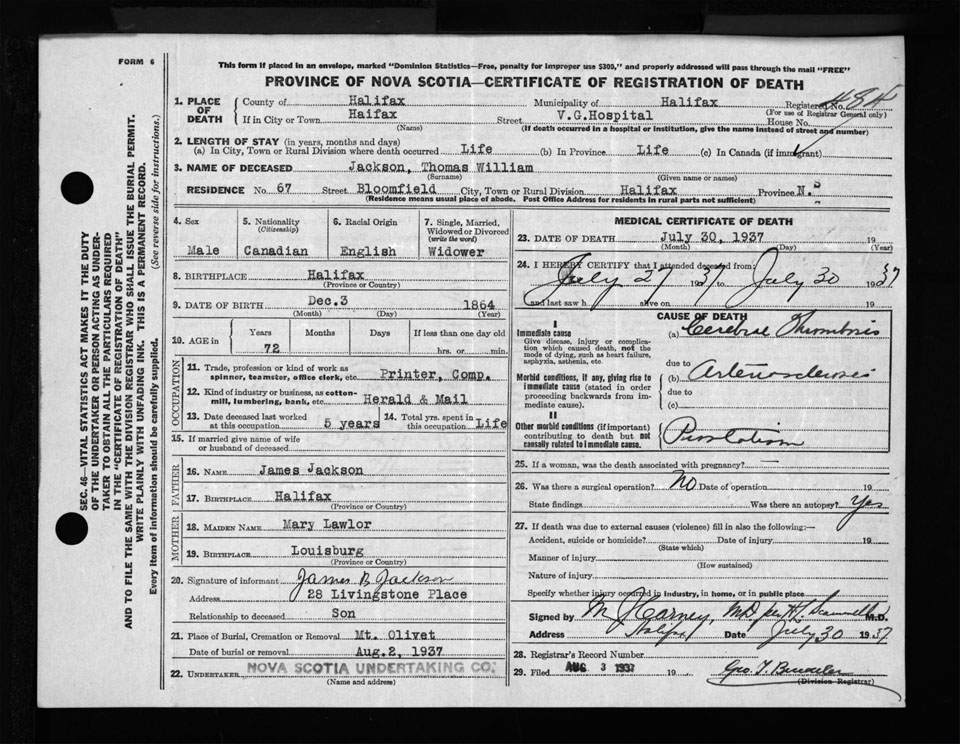 FORM 6
This form if placed in an envelope, marked "Dominion Statistics—Free, penalty for improper use $300," and properly addressed will pass through the mail "FREE"
PROVINCE OF NOVA SCOTIA—CERTIFICATE OF REGISTRATION OF DEATH
SEC. 46—VITAL STATISTICS ACT MAKES IT THE DUTY
OF THE UNDERTAKER OR PERSON ACTING AS UNDER-
TAKER TO OBTAIN ALL THE PARTICULARS REQUIRED
IN THE "CERTIFICATE OF REGISTRATION OF DEATH"
AND TO FILE THE SAME WITH THE DIVISION REGISTRAR WHO SHALL ISSUE THE BURIAL PERMIT.
WRITE PLAINLY WITH UNFADING INK. THIS IS A PERMANENT RECORD.
Every item of information should be carefully supplied. (See reverse side for instructions.)
1. PLACE OF DEATH
County of Halifax Municipality of Halifax Registered No.
(For use of Registrar General only)
If in City or Town Haifax Street V.G.Hospital House No.
(Name) (If death occurred in a hospital or institution, give the name instead of street and number)
2. LENGTH OF STAY (in years, months and days)
(a) In City, Town or Rural Division where death occurred Life (b) In Province Life (c) In Canada (if immigrant)
3. NAME OF DECEASED Jackson, Thomas William
(Surname) (Given name or names)
RESIDENCE No. 67 Street Bloomfield City, Town or Rural Division Halifax Province N.S
(Residence means usual place of abode. Post Office Address for residents in rural parts not sufficient)
4. Sex
Male
5. Nationality
(Citizenship)
Canadian
6. Racial Origin
English
7. Single, Married,
Widowed or Divorced
(write the word)
Widower
8. BIRTHPLACE Halifax
(Province or Country)
9. DATE OF BIRTH Dec.3 1864
(Month) (Day) (Year)
10. AGE in
Years Months Days If less than one day old
72 hrs. or min.
OCCUPATION
11. Trade, profession or kind of work as
spinner, teamster, office clerk, etc. Printer, Comp.
12. Kind of industry or business, as cotton-
mill, lumbering, bank, etc. Herald & Mail
13. Date deceased last worked
at this occupation 5 years
14. Total yrs. spent in
this occupation Life
15. If married give name of wife
or husband of deceased
FATHER
16. NAME James Jackson
17. BIRTHPLACE Halifax
(Province or Country)
MOTHER
18. MAIDEN NAME Mary Lawlor
19. BIRTHPLACE Louisburg
(Province or Country)
20. Signature of informant James B Jackson
Address 28 Livingstone Place
Relationship to deceased Son
21. Place of Burial, Cremation or Removal Mt. Olivet
Date of burial or removal Aug.2, 1937
22. UNDERTAKER NOVA SCOTIA UNDERTAKING CO.
(Name and address)
MEDICAL CERTIFICATE OF DEATH
23. DATE OF DEATH July 30, 1937 19
(Month) (Day) (Year)
24. I HEREBY CERTIFY that I attended deceased from:
July 27 1937 to July 30 1937
and last saw h alive on 19
CAUSE OF DEATH
I
Immediate cause
Give disease, injury or complica-
tion which caused death, not the
mode of dying, such as heart failure,
asphyxia, asthenia, etc.
(a) Cerebral Thrombosis
due to
Morbid conditions, if any, giving rise to
immediate cause (stated in order
proceeding backwards from im-
mediate cause).
(b) Arteriosclerosis
due to
(c)
II
Other morbid conditions (if important)
contributing to death but not
causally related to immediate cause.
25. If a woman, was the death associated with pregnancy? —
26. Was there a surgical operation? NO Date of operation 19
State findings Was there an autopsy? Yes
27. If death was due to external causes (violence) fill in also the following:—
Accident, suicide or homicide? Date of injury 19
(State which)
Manner of injury
(How sustained)
Nature of injury
Specify whether injury occurred in industry, in home, or in public place
Signed by M.D. per M.D.
Address Halifax Date July 30 1937
28. Registrar's Record Number
29. Filed AUG 3 1937 19
(Division Registrar)